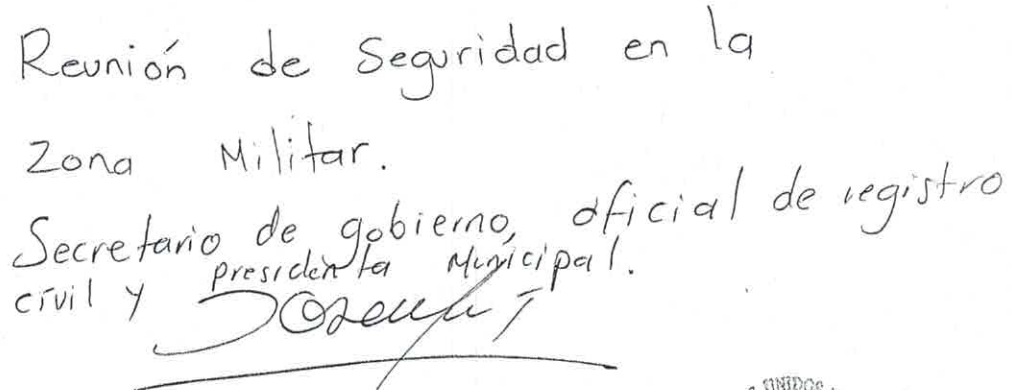 Reunión de Seguridad en la
Zona Militar.
Secretario de gobierno, oficial de registro
civil y presidenta Municipal.
UNIDOS